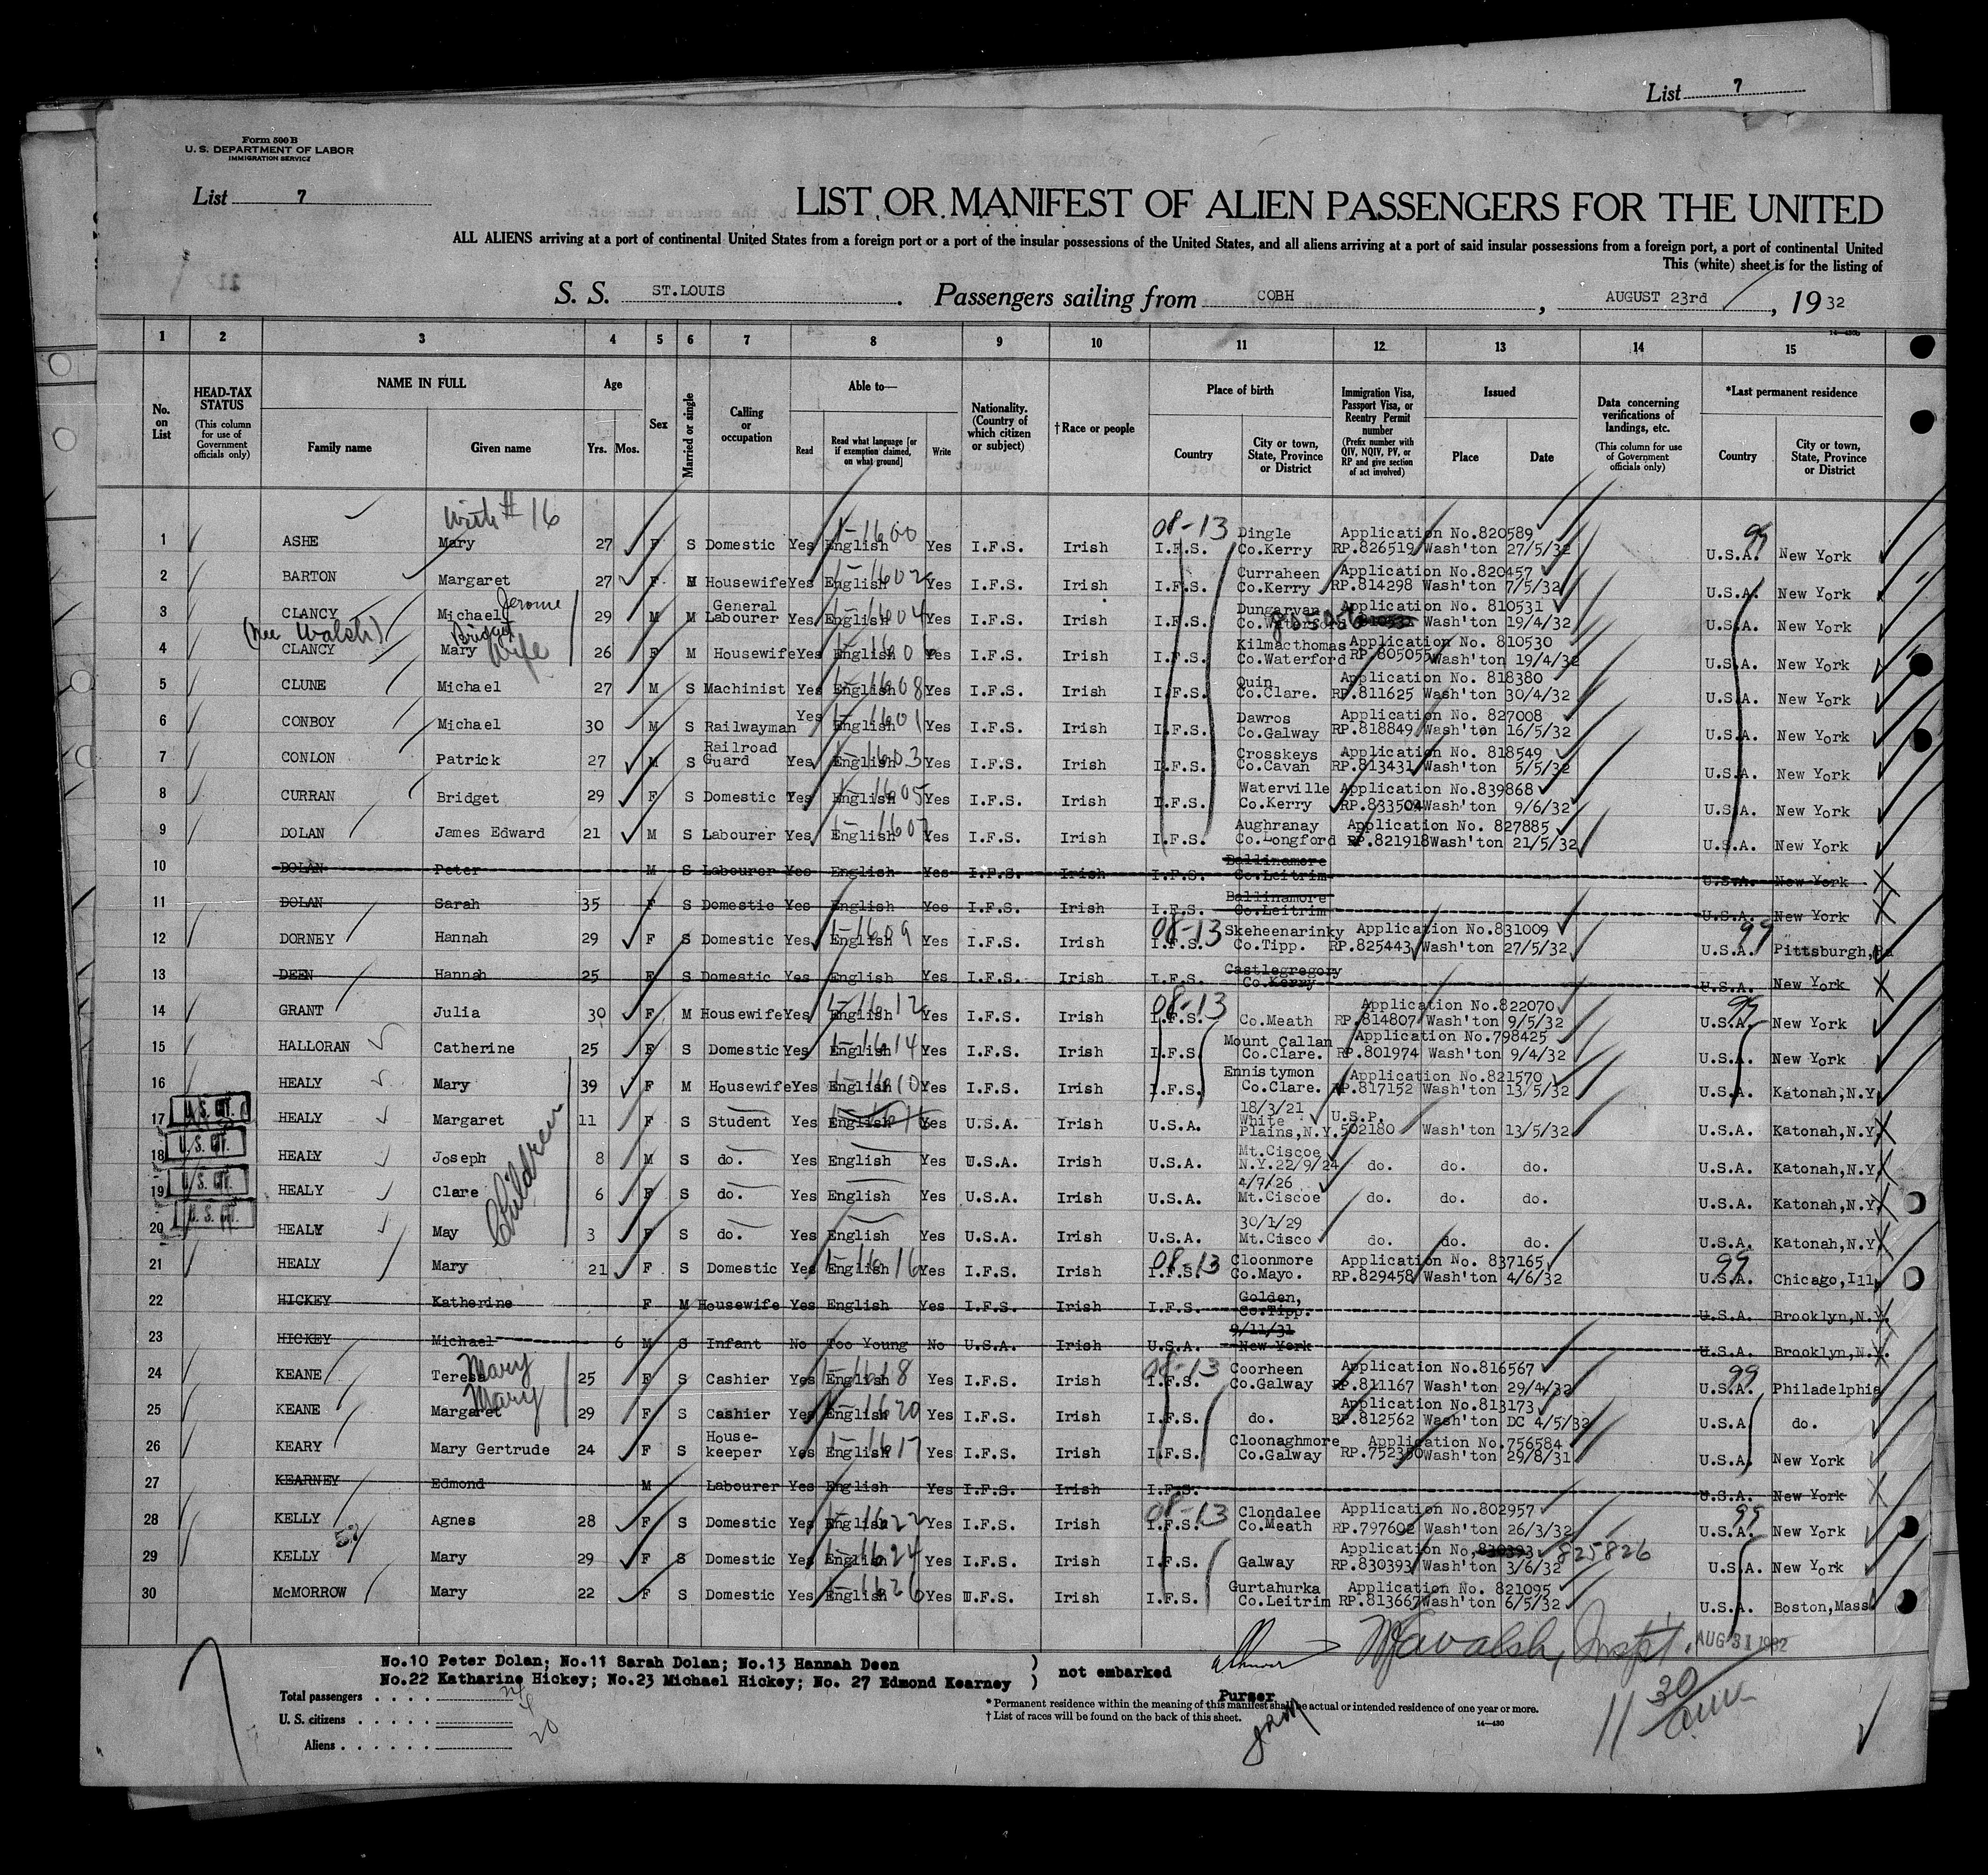 List 7
Form 500 B
U. S. DEPARTMENT OF LABOR
IMMIGRATION SERVICE
List 7
LIST OR MANIFEST OF ALIEN PASSENGERS FOR THE UNITED
ALL ALIENS arriving at a port of continental United States from a foreign port or a port of the insular possessions of the United States, and all aliens arriving at a port of said insular possessions from a foreign port, a port of continental United
This (white) sheet is for the listing of
S. S. ST.LOUIS. Passengers sailing from COBH, AUGUST 23rd, 19 32
14—430b
1 2 3 4 5 6 7 8 9 10 11 12 13 14 15
No. on List
HEAD-TAX STATUS (This column for use of Government officials only)
NAME IN FULL Family name Given name
Age Yrs. Mos.
Sex
Married or single
Calling or occupation
Able to— Read Read what language [or if exemption claimed, on what ground] Write
Nationality. (Country of which citizen or subject)
†Race or people
Place of birth Country City or town, State, Province or District
Immigration Visa, Passport Visa, or Reentry Permit number (Prefix number with QIV, NQIV, PV, or RP and give section of act involved)
Issued Place Date
Data concerning verifications of landings, etc. (This column for use of Government officials only)
*Last permanent residence Country City or town, State, Province or District
with # 16
1 ASHE Mary 27 F S Domestic Yes English 1-1600 Yes I.F.S. Irish 08-13 I.F.S. Dingle Co.Kerry Application No.820589 RP.826519 Wash'ton 27/5/32 99 U.S.A. New York
2 BARTON Margaret 27 F M Housewife Yes English 1-1602 Yes I.F.S. Irish I.F.S. Curraheen Co.Kerry Application No.820457 RP.814298 Wash'ton 7/5/32 U.S.A. New York
3 CLANCY Michael Jerome 29 M M General Labourer Yes English 1-1604 Yes I.F.S. Irish I.F.S. Dungarvan Application No. 810531 805056 Wash'ton 19/4/32 U.S.A. New York
(nee Walsh)
4 CLANCY Mary Bridget Wife 26 F M Housewife Yes English Yes I.F.S. Irish I.F.S. Kilmacthomas Co.Waterford Application No. 810530 RP.805055 Wash'ton 19/4/32 U.S.A. New York
5 CLUNE Michael 27 M S Machinist Yes English 1-1608 Yes I.F.S. Irish I.F.S. Quin Co.Clare. Application No. 818380 RP.811625 Wash'ton 30/4/32 U.S.A. New York
6 CONBOY Michael 30 M S Railwayman Yes English 1-1601 Yes I.F.S. Irish I.F.S. Dawros Co.Galway Application No. 827008 RP.818849 Wash'ton 16/5/32 U.S.A. New York
7 CONLON Patrick 27 M S Railroad Guard Yes English 1-1603 Yes I.F.S. Irish I.F.S. Crosskeys Co.Cavan Application No. 818549 RP.813431 Wash'ton 5/5/32 U.S.A. New York
8 CURRAN Bridget 29 F S Domestic Yes English 1-1605 Yes I.F.S. Irish I.F.S. Waterville Co.Kerry Application No.839868 RP.833504 Wash'ton 9/6/32 U.S.A. New York
9 DOLAN James Edward 21 M S Labourer Yes English 1-1607 Yes I.F.S. Irish I.F.S. Aughranay Co.Longford Application No. 827885 RP.821918 Wash'ton 21/5/32 U.S.A. New York
10 DOLAN Peter M S Labourer Yes English Yes I.F.S. Irish I.F.S. Ballinamore Co.Leitrim U.S.A. New York
11 DOLAN Sarah 35 F S Domestic Yes English Yes I.F.S. Irish I.F.S. Ballinamore Co.Leitrim U.S.A. New York
12 DORNEY Hannah 29 F S Domestic Yes English 1-1609 Yes I.F.S. Irish 08-13 I.F.S. Skeheenarinky Co.Tipp. Application No.831009 RP.825443 Wash'ton 27/5/32 99 U.S.A. Pittsburgh,Pa
13 DEEN Hannah 25 F S Domestic Yes English Yes I.F.S. Irish I.F.S. Castlegregory Co.Kerry U.S.A. New York
14 GRANT Julia 30 F M Housewife Yes English 1-1612 Yes I.F.S. Irish 08-13 I.F.S. Co.Meath Application No.822070 RP.814807 Wash'ton 9/5/32 99 U.S.A. New York
15 HALLORAN Catherine 25 F S Domestic Yes English 1-1614 Yes I.F.S. Irish I.F.S Mount Callan Co.Clare. Application No.798425 RP.801974 Wash'ton 9/4/32 U.S.A. New York
16 HEALY Mary 39 F M Housewife Yes English 1-1610 Yes I.F.S. Irish I.F.S. Ennistymon Co.Clare. Application No.821570 RP.817152 Wash'ton 13/5/32 U.S.A. Katonah,N.Y.
Children
17 U.S. CIT. HEALY Margaret 11 F S Student Yes English Yes U.S.A. Irish U.S.A. 18/3/21 White Plains,N.Y. U.S.P. 502180 Wash'ton 13/5/32 U.S.A. Katonah,N.Y.
18 U.S. CIT. HEALY Joseph 8 M S do. Yes English Yes U.S.A. Irish U.S.A. Mt.Ciscoe N.Y.22/9/24 do. do. do. U.S.A. Katonah,N.Y.
19 U.S. CIT. HEALY Clare 6 F S do. Yes English Yes U.S.A. Irish U.S.A. 4/7/26 Mt.Ciscoe do. do. do. U.S.A. Katonah,N.Y.
20 U.S. CIT. HEALY May 3 F S do. Yes English Yes U.S.A. Irish U.S.A. 30/1/29 Mt.Cisco do. do. do. U.S.A. Katonah,N.Y.
21 HEALY Mary 21 F S Domestic Yes English 1-1616 Yes I.F.S. Irish 08-13 I.F.S. Cloonmore Co.Mayo. Application No. 837165 RP.829458 Wash'ton 4/6/32 99 U.S.A. Chicago,Ill.
22 HICKEY Katherine F M Housewife Yes English Yes I.F.S. Irish I.F.S. Golden, Co.Tipp. U.S.A. Brooklyn,N.Y.
23 HICKEY Michael 6 M S Infant No Too Young No U.S.A. Irish U.S.A. 9/11/31 New York U.S.A. Brooklyn,N.Y.
24 KEANE Teresa Mary 25 F S Cashier Yes English 1-1618 Yes I.F.S. Irish 08-13 I.F.S. Coorheen Co.Galway Application No.816567 RP.811167 Wash'ton 29/4/32 99 U.S.A. Philadelphia
25 KEANE Margaret Mary 29 F S Cashier Yes English 1-1620 Yes I.F.S. Irish I.F.S. do. Application No.813173 RP.812562 Wash'ton DC 4/5/32 U.S.A do.
26 KEARY Mary Gertrude 24 F S House-keeper Yes English 1-1617 Yes I.F.S. Irish I.F.S. Cloonaghmore Co.Galway Application No.756584 RP.752350 Wash'ton 29/8/31 U.S.A. New York
27 KEARNEY Edmond M Labourer Yes English Yes I.F.S. Irish I.F.S. U.S.A. New York
28 KELLY Agnes 28 F S Domestic Yes English 1-1622 Yes I.F.S. Irish 08-13 I.F.S. Clondalee Co.Meath Application No.802957 RP.797602 Wash'ton 26/3/32 99 U.S.A. New York
29 KELLY Mary 29 F S Domestic Yes English 1-1624 Yes I.F.S. Irish I.F.S. Galway Application No.830393 825826 RP.830393 Wash'ton 3/6/32 U.S.A. New York
30 McMORROW Mary 22 F S Domestic Yes English 1-1626 Yes I.F.S. Irish I.F.S. Gurtahurka Co.Leitrim Application No. 821095 RP.813667 Wash'ton 6/5/32 U.S.A. Boston,Mass.
AUG 31 1932
No.10 Peter Dolan; No.11 Sarah Dolan; No.13 Hannah Deen )
No.22 Katharine Hickey; No.23 Michael Hickey; No. 27 Edmond Kearney ) not embarked
Purser
Total passengers . . . . 24
U. S. citizens . . . . . 4
Aliens . . . . . . 20
* Permanent residence within the meaning of this manifest shall be actual or intended residence of one year or more.
† List of races will be found on the back of this sheet.
14—430
30